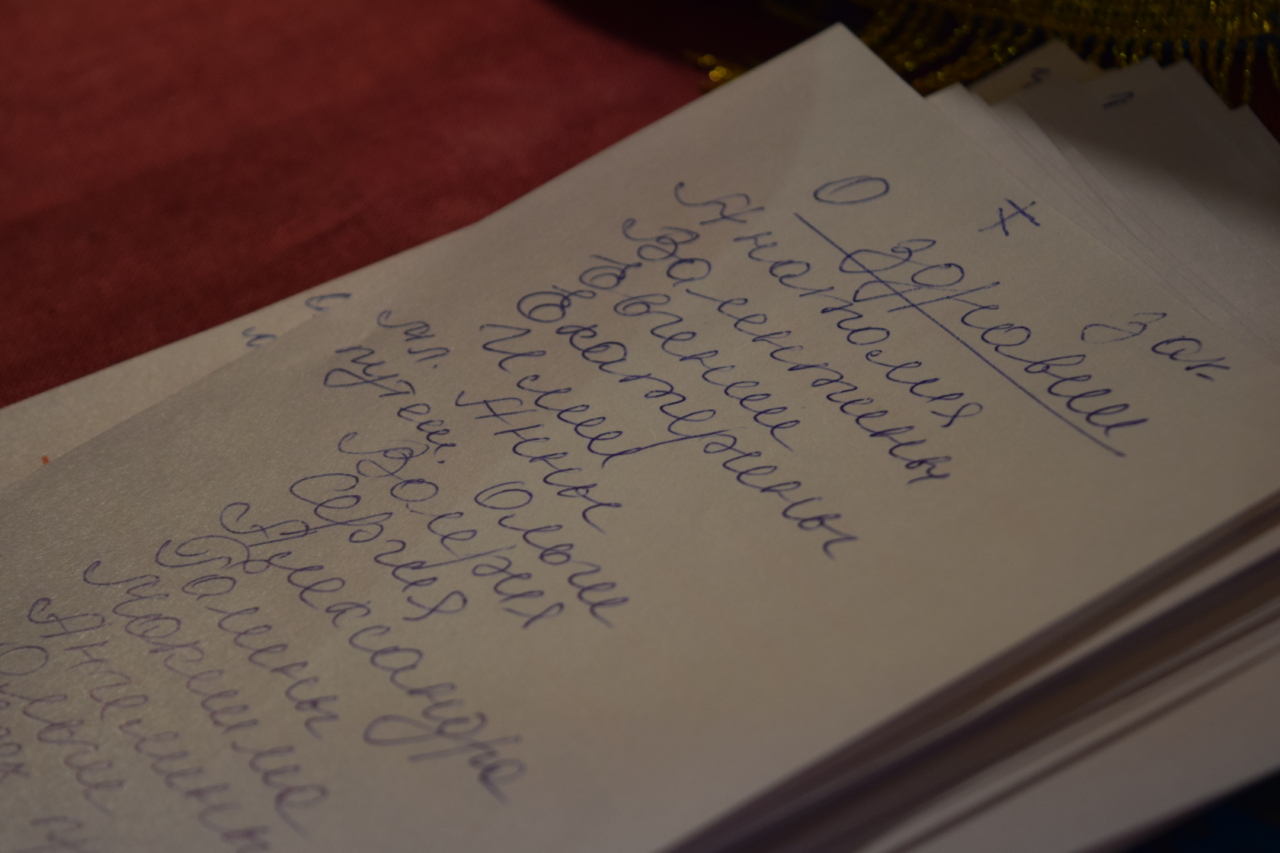 зак.
О здравии
Анатолия
Валентины
Евгении
Екатерины
Илии
мл. Анны
путеш. Ольги
Валерия
Сергия
Александра
Галины
Максима
Ангелины
Ольги